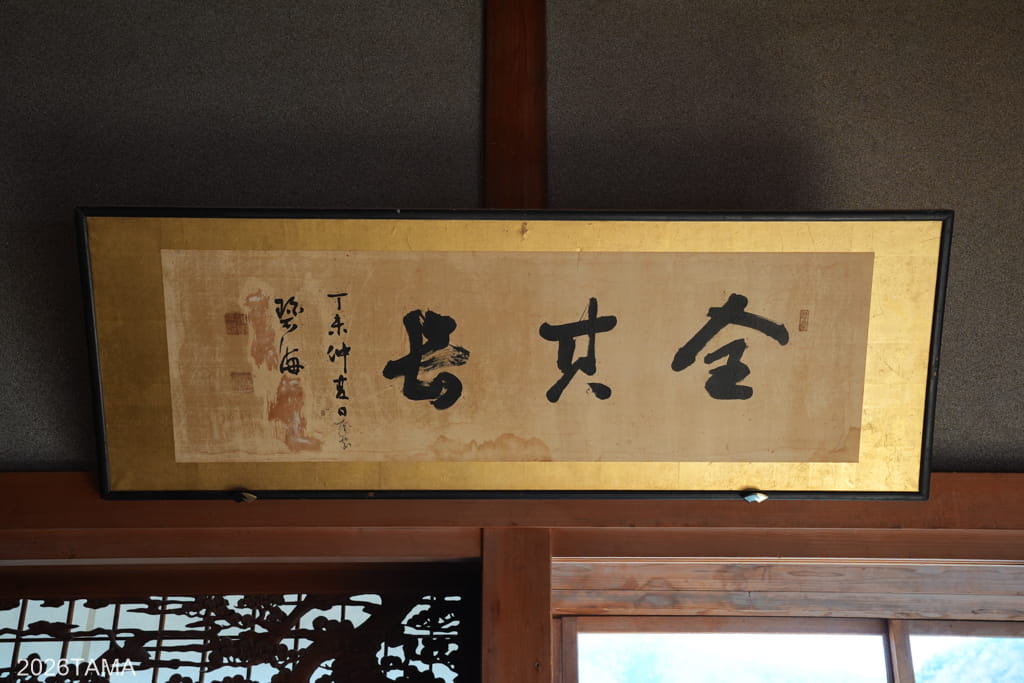 全其長
丁未仲夏日
碧海
2026TAMA